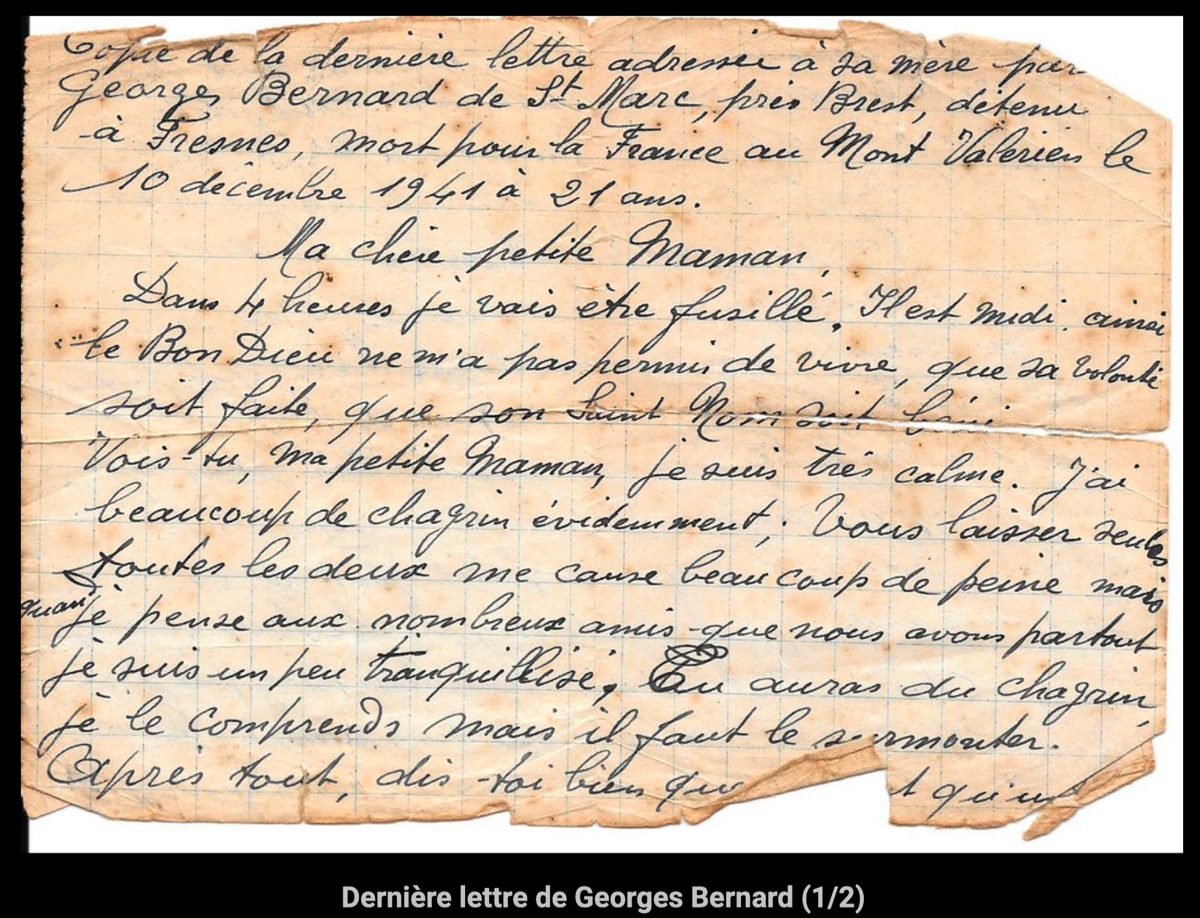 Copie de la dernière lettre adressée à sa mère par
Georges Bernard de St Marc, près Brest, détenu
à Fresnes, mort pour la France au Mont Valérien le
10 décembre 1941 à 21 ans.
Ma chère petite Maman,
Dans 4 heures je vais être fusillé. Il est midi. ainsi
le Bon Dieu ne m'a pas permis de vivre, que sa volonté
soit faite, que son Saint Nom soit béni
Vois tu, ma petite Maman, je suis très calme. J'ai
beaucoup de chagrin évidemment ; Vous laisser seules
toutes les deux me cause beaucoup de peine mais
quand je pense aux nombreux amis que nous avons partout
je suis un peu tranquillisé. Tu auras du chagrin,
je le comprends mais il faut le surmonter.
Après tout, dis-toi bien que
Dernière lettre de Georges Bernard (1/2)